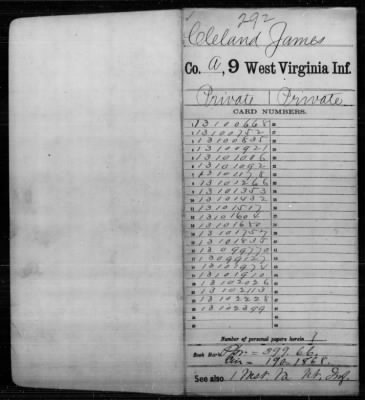 292
Cleland James
Co. A, 9 West Virginia Inf.
Private | Private
CARD NUMBERS.
1 13100668
2 13100752
3 13100835
4 13100921
5 13101006
6 13101092
7 13101178
8 13101266
9 13101353
10 13101432
11 13101517
12 13101604
13 13101680
14 13101757
15 13101835
16 13099770
17 13099127
18 13101974
19 13101910
20 13102026
21 13102113
22 13102228
23 13102399
Number of personal papers herein 1
Book Mark: = 399.66.
= 190-1868
See also 1 Va. Vt. Inf.